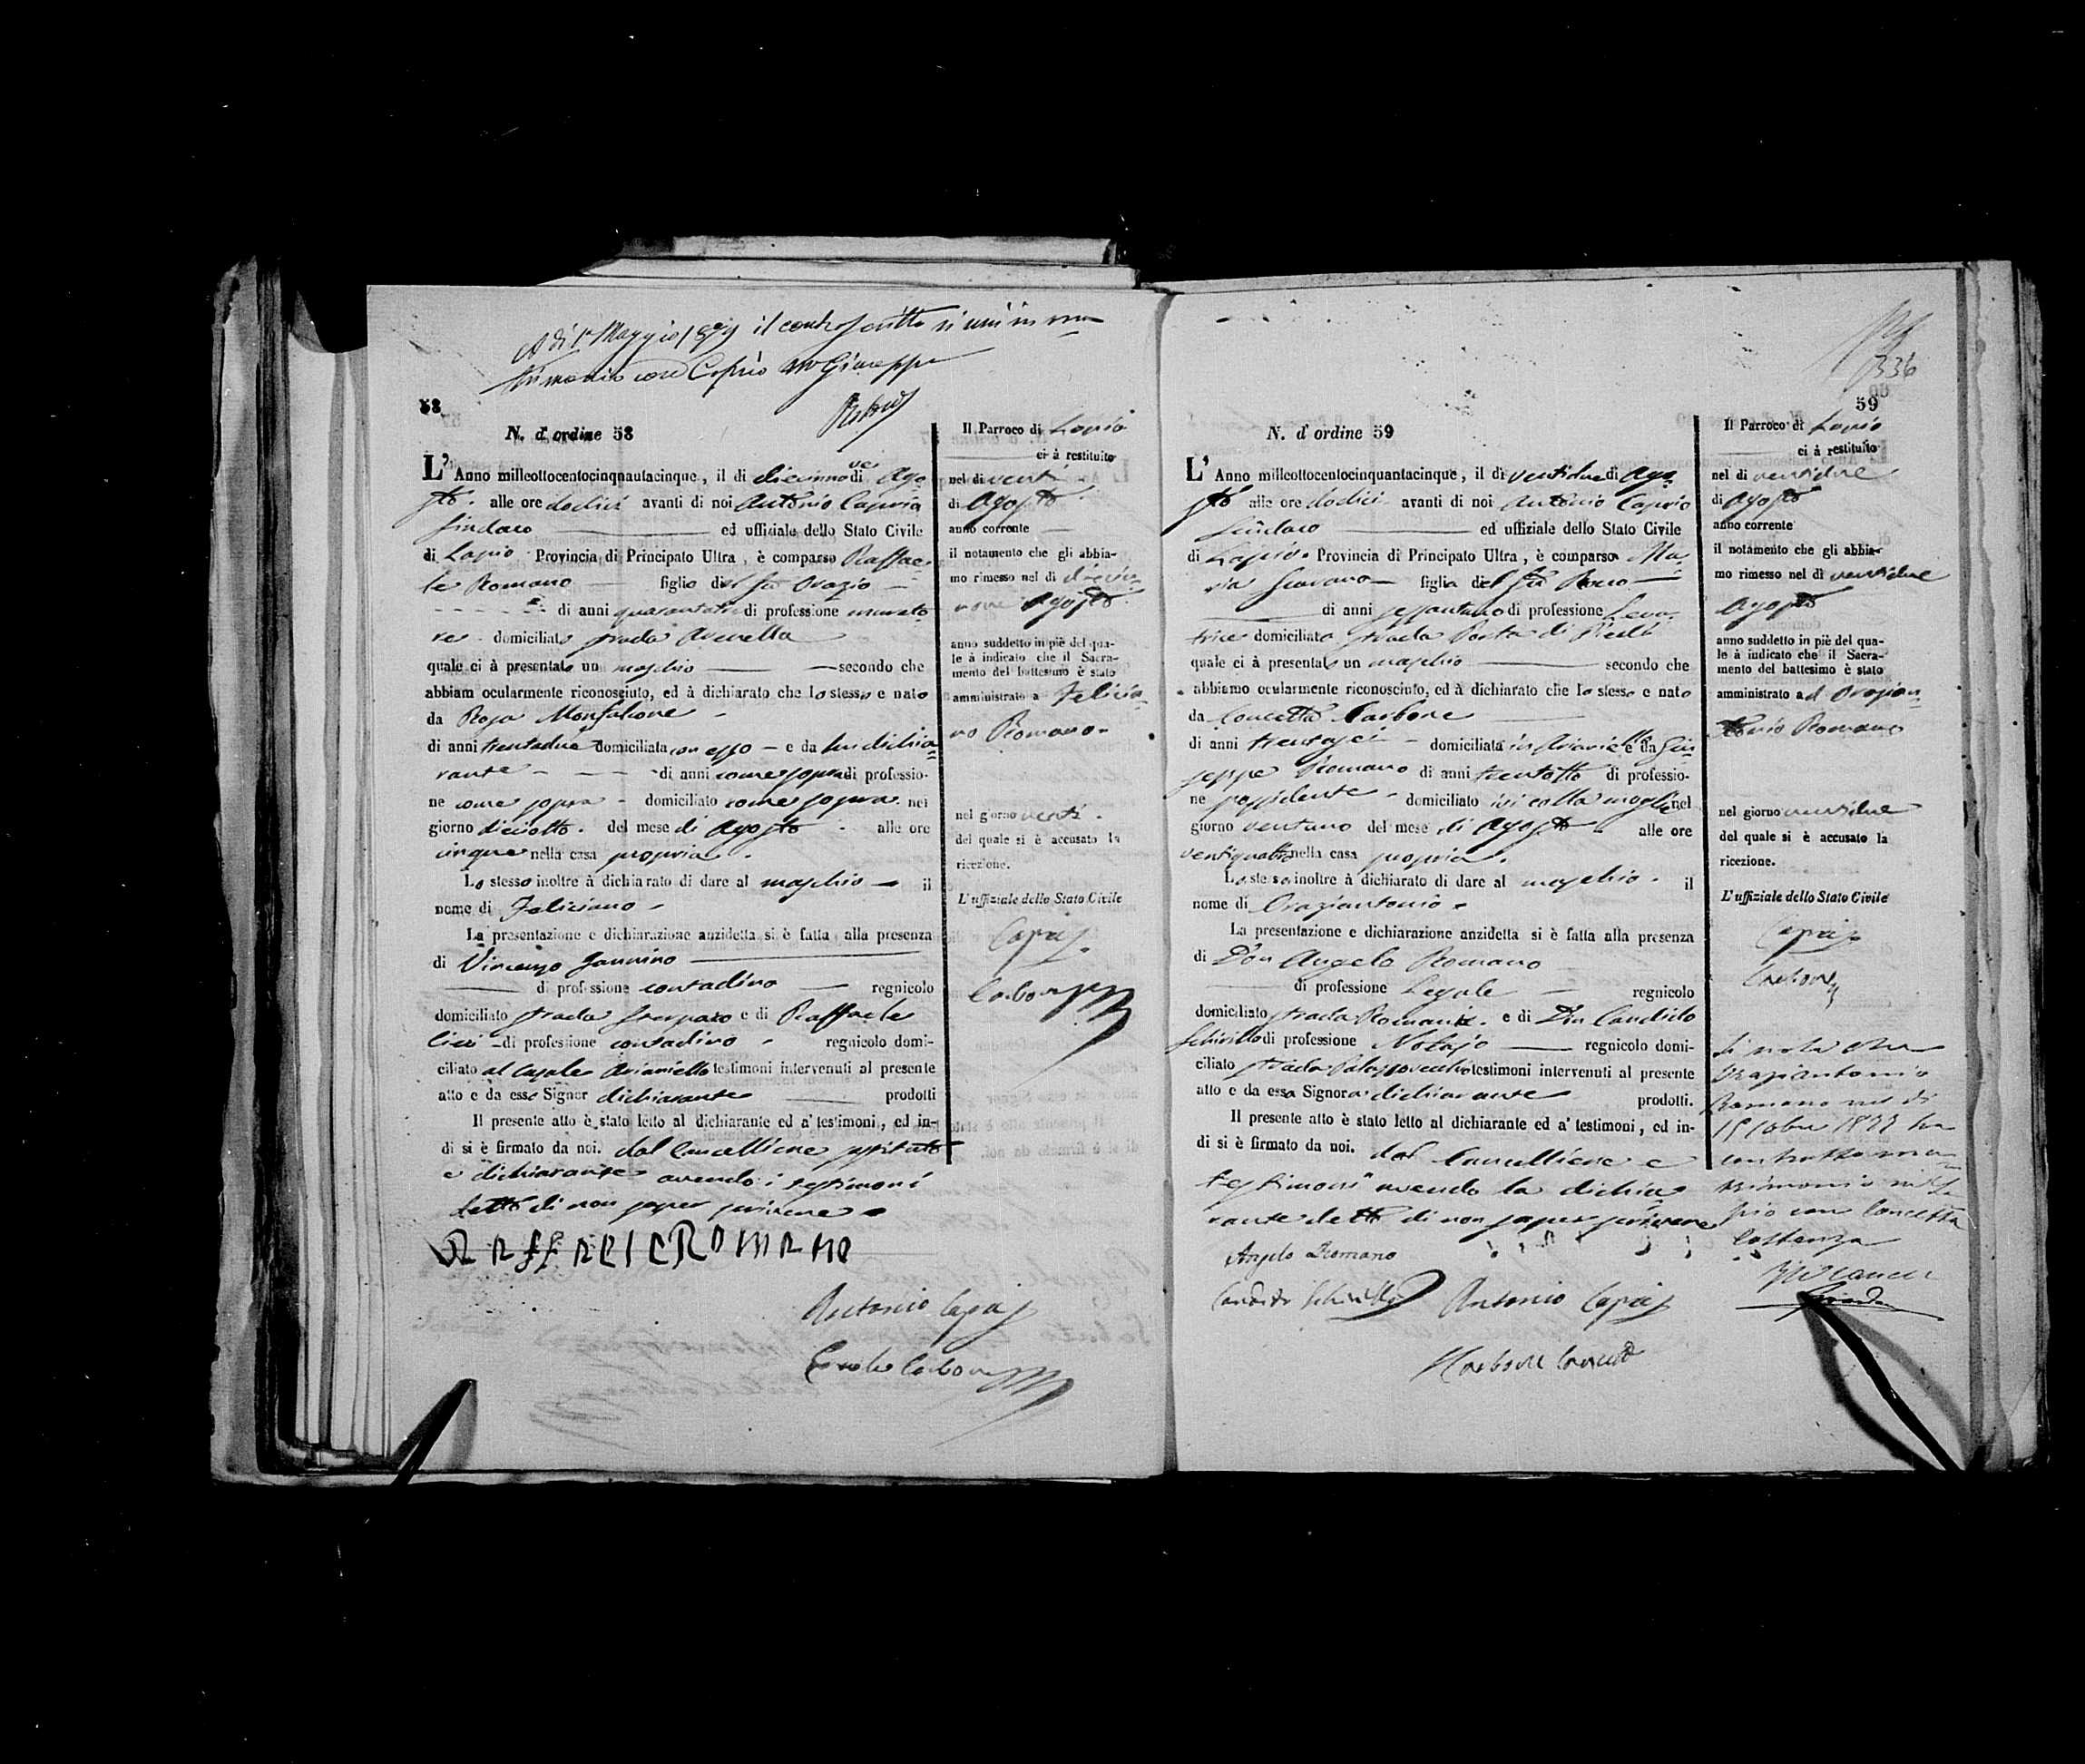 A dì 1° Maggio 18 il controscritto si unì in ma
trimonio con Caprio M Giuseppa
58
N. d'ordine 58
L'Anno milleottocentocinquantacinque, il dì diecinnove di Ago
sto alle ore dodici avanti di noi Antonio Caprio
Sindaco ed uffiziale dello Stato Civile
di Lapio Provincia di Principato Ultra, è comparso Raffae
le Romano figlio del fu Orazio
di anni quarantatre di professione murato
re domiciliato strada Avenella
quale ci à presentato un maschio secondo che
abbiam ocularmente riconosciuto, ed à dichiarato che lo stesso e nato
da Rosa Monfalcone
di anni trentadue domiciliata con esso e da lui dichia
rante di anni come sopra di professio-
ne come sopra domiciliato come sopra nel
giorno dieciotto del mese di Agosto alle ore
cinque nella casa propria.
Lo stesso inoltre à dichiarato di dare al maschio il
nome di Feliciano
La presentazione e dichiarazione anzidetta si è fatta alla presenza
di Vincenzo Iannino
di professione contadino regnicolo
domiciliato strada e di Raffaele
di professione contadino regnicolo domi-
ciliato al Casale Arianiello testimoni intervenuti al presente
atto e da esso Signor dichiarante prodotti
Il presente atto è stato letto al dichiarante ed a' testimoni, ed in-
di si è firmato da noi. dal Cancelliere sostituto
e dichiarante avendo i testimoni
detto di non saper scrivere
RAFFAELE ROMANO
Antonio Caprio
Carbone
Il Parroco di Lapio
ci à restituito
nel dì venti
di Agosto
anno corrente
il notamento che gli abbia-
mo rimesso nel dì diecin
nove Agosto
anno suddetto in piè del qua-
le à indicato che il Sacra-
mento del battesimo è stato
amministrato a Felicia
no Romano
nel giorno venti
del quale si è accusato la
ricezione.
L'uffiziale dello Stato Civile
Caprio
Carbone
336
59
N. d'ordine 59
L'Anno milleottocentocinquantacinque, il dì ventidue di Ago
sto alle ore dodici avanti di noi Antonio Caprio
Sindaco ed uffiziale dello Stato Civile
di Lapio Provincia di Principato Ultra, è comparsa Ma
ria figlia del fu Rocco
di anni sessantuno di professione Leva
trice domiciliata strada Porta di
quale ci à presentato un maschio secondo che
abbiamo ocularmente riconosciuto, ed à dichiarato che lo stesso e nato
da Concetta Carbone
di anni trentasei domiciliata in Arianiello e da Giu
seppe Romano di anni trentotto di professio-
ne possidente domiciliato ivi colla moglie nel
giorno ventuno del mese di Agosto alle ore
ventiquattro nella casa propria.
La stessa inoltre à dichiarato di dare al maschio il
nome di Oraziantonio
La presentazione e dichiarazione anzidetta si è fatta alla presenza
di Don Angelo Romano
di professione Legale regnicolo
domiciliato strada Romani e di Don Candido
Schirillo di professione Notajo regnicolo domi-
ciliato strada Palazzovecchio testimoni intervenuti al presente
atto e da essa Signora dichiarante prodotti.
Il presente atto è stato letto al dichiarante ed a' testimoni, ed in-
di si è firmato da noi. dal Cancelliere e
testimoni avendo la dichia
rante detto di non saper scrivere
Angelo Romano
Candido Schirillo Antonio Caprio
Carbone
Il Parroco di Lapio
ci à restituito
nel dì ventidue
di Agosto
anno corrente
il notamento che gli abbia-
mo rimesso nel dì ventidue
Agosto
anno suddetto in piè del qua-
le à indicato che il Sacra-
mento del battesimo è stato
amministrato ad Orazian
tonio Romano
nel giorno ventidue
del quale si è accusato la
ricezione.
L'uffiziale dello Stato Civile
Caprio
Carbone
Si nota che
Oraziantonio
Romano nel dì
ha
contratto ma
trimonio in La
pio con Concetta
Costanza